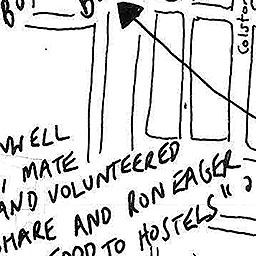 Colston
WELL
, MATE
AND VOLUNTEERED
HARE AND RON EAGER
FOOD TO HOSTELS"